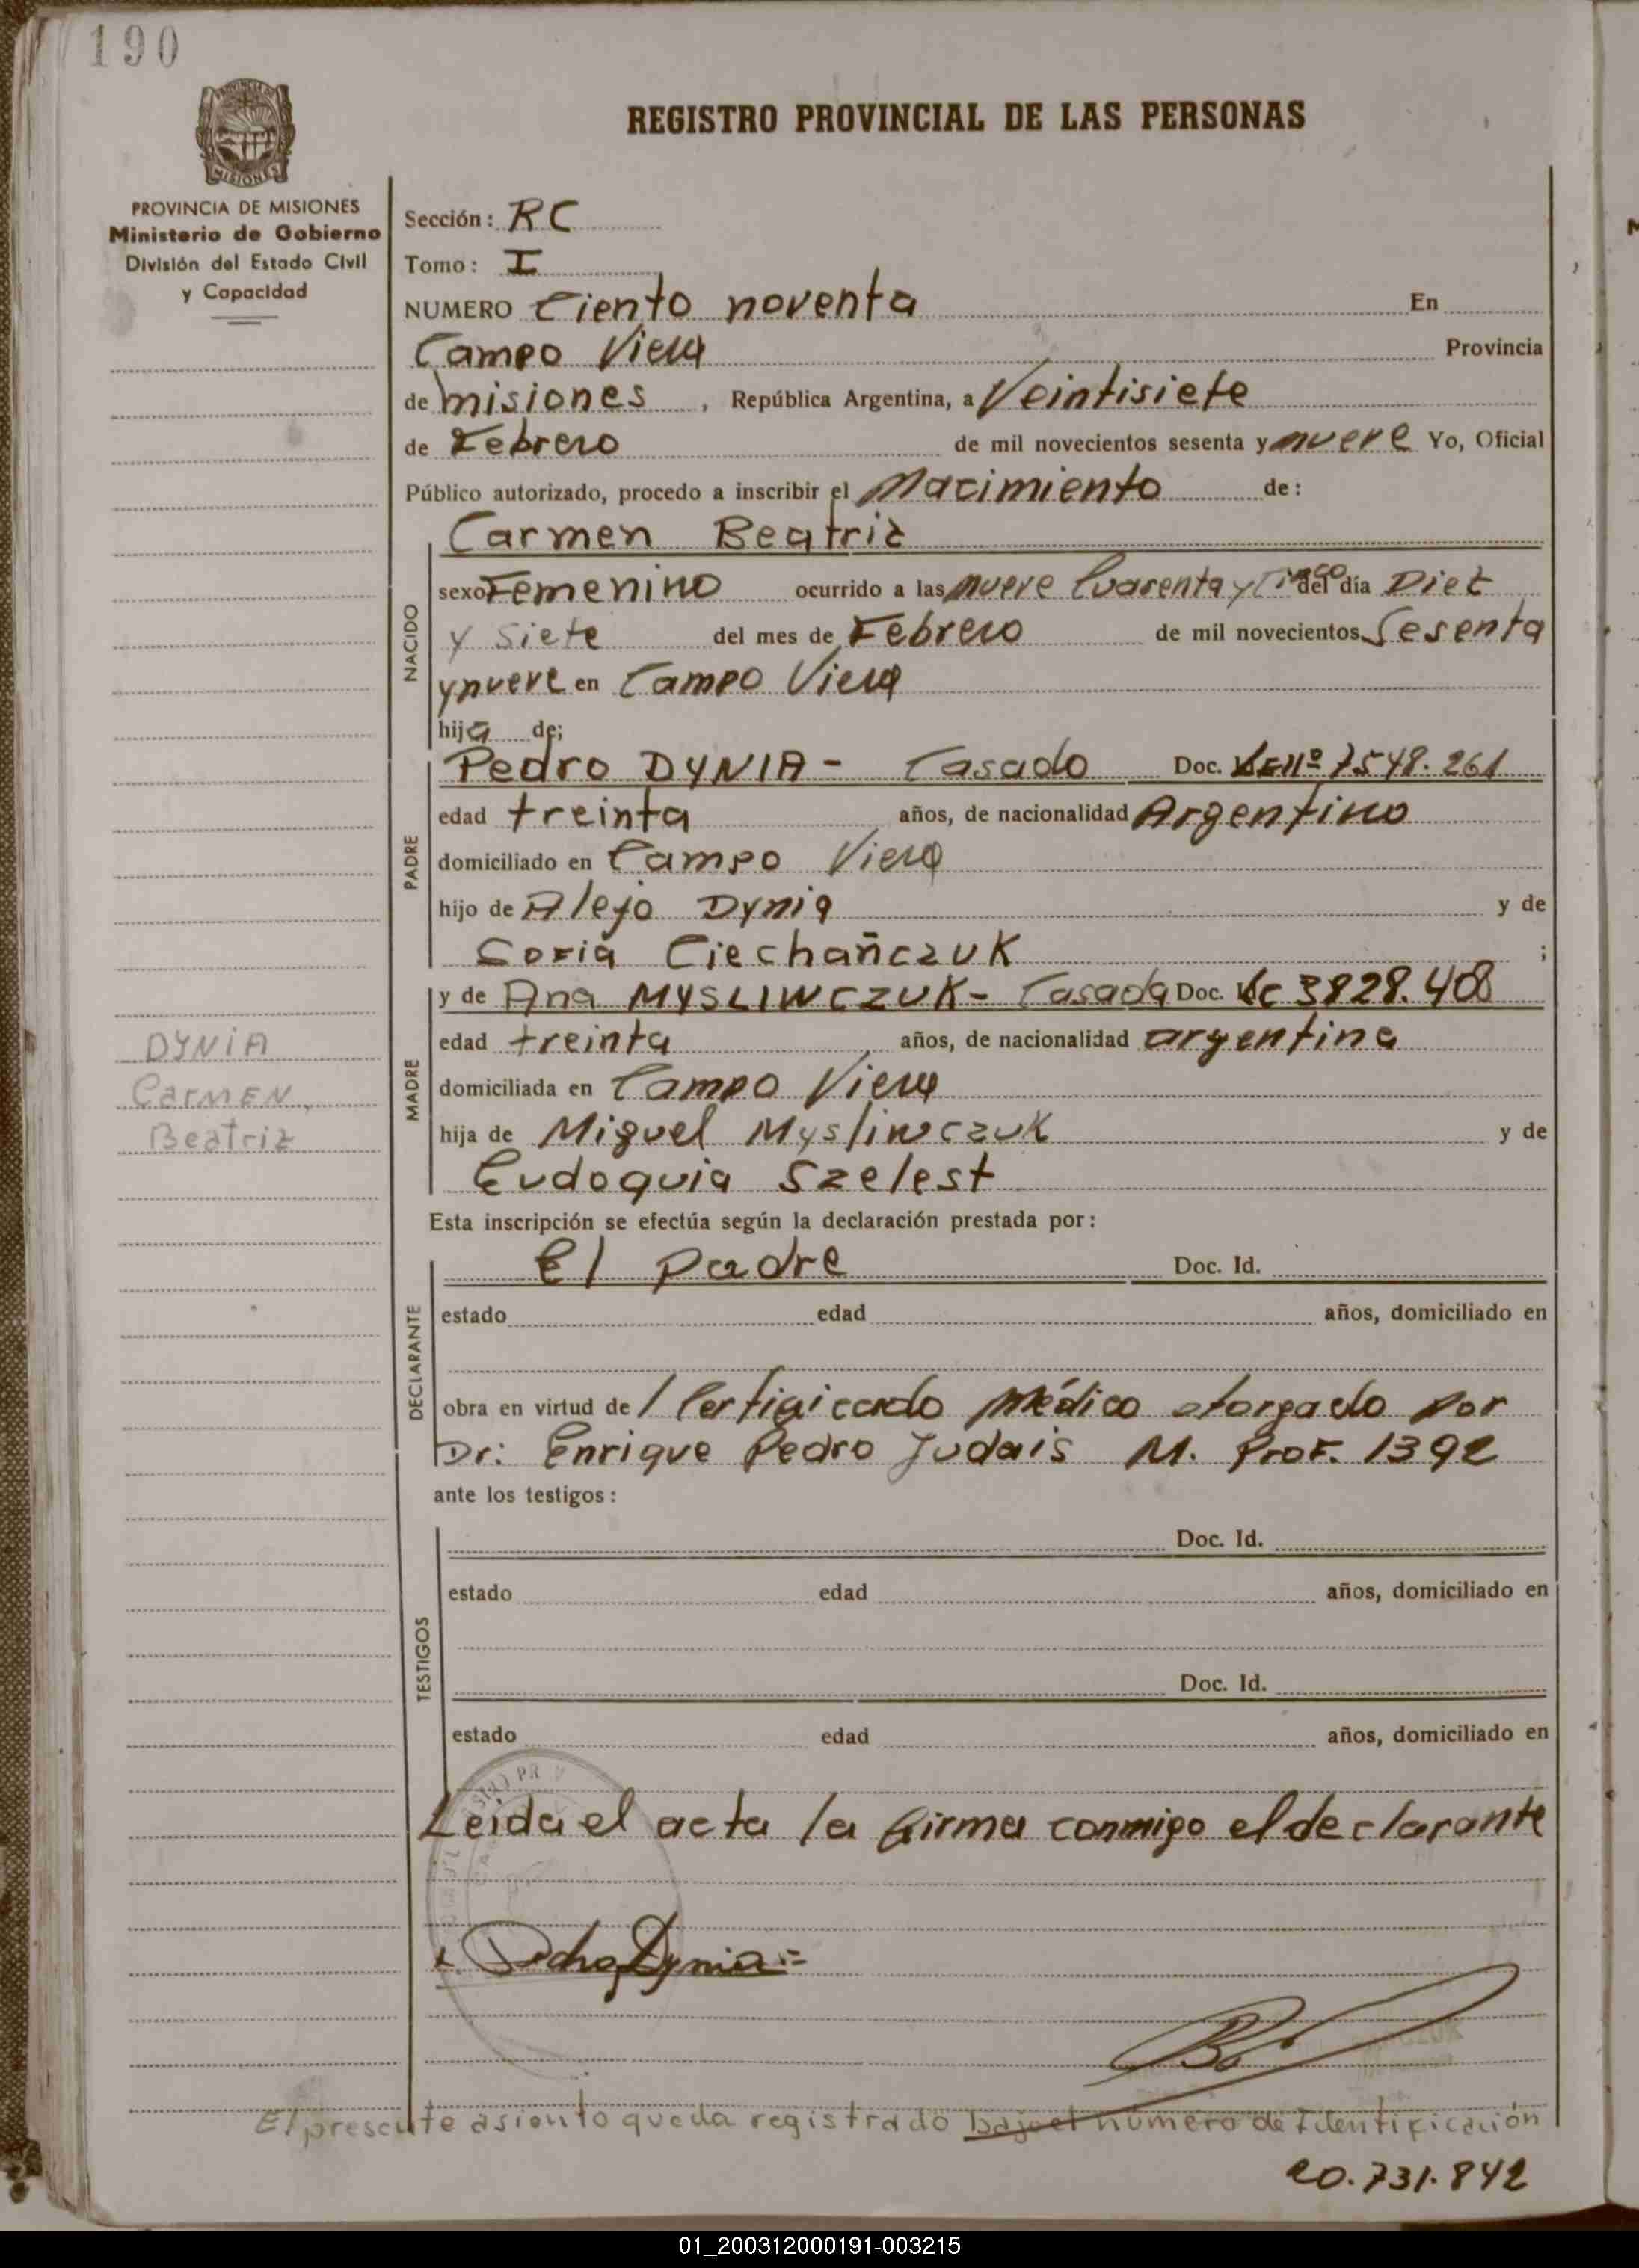 190
MISIONES
PROVINCIA DE MISIONES
Ministerio de Gobierno
División del Estado Civil
y Capacidad
REGISTRO PROVINCIAL DE LAS PERSONAS
Sección: RC
Tomo: I
NUMERO Ciento noventa En
Campo Viera Provincia
de Misiones, República Argentina, a Veintisiete
de Febrero de mil novecientos sesenta y nueve Yo, Oficial
Público autorizado, procedo a inscribir el Nacimiento de:
NACIDO
Carmen Beatriz
sexo Femenino ocurrido a las nueve Cuarenta y Cinco del día Diez
y Siete del mes de Febrero de mil novecientos Sesenta
y nueve en Campo Viera
hija de;
PADRE
Pedro DYNIA - Casado Doc. Nº 7548.261
edad treinta años, de nacionalidad Argentino
domiciliado en Campo Viera
hijo de Alejo Dynia y de
Sofia Ciechañczuk ;
MADRE
y de Ana MYSLIWCZUK - Casada Doc. 3828.408
edad treinta años, de nacionalidad argentina
domiciliada en Campo Viera
hija de Miguel Mysliwczuk y de
Eudoquia Szelest
DYNIA
Carmen
Beatriz
Esta inscripción se efectúa según la declaración prestada por:
DECLARANTE
El padre Doc. Id.
estado edad años, domiciliado en
obra en virtud de / Certificado Médico otorgado por
Dr: Enrique Pedro Judais M. Prof. 1392
ante los testigos:
TESTIGOS
Doc. Id.
estado edad años, domiciliado en
Doc. Id.
estado edad años, domiciliado en
Leida el acta la firma conmigo el declarante
Pedro Dynia
El presente asiento queda registrado bajo el número de Identificación
20.731.842
01_200312000191-003215